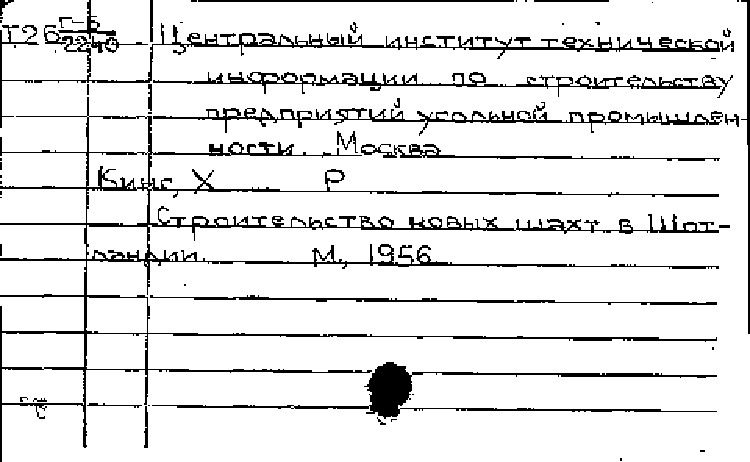 Т26 Г-5/2240 Центральный институт технической
информации по строительству
предприятий угольной промышлен-
ности. Москва
Кинг, Х Р
Строительство новых шахт в Шот-
ландии. М., 1956